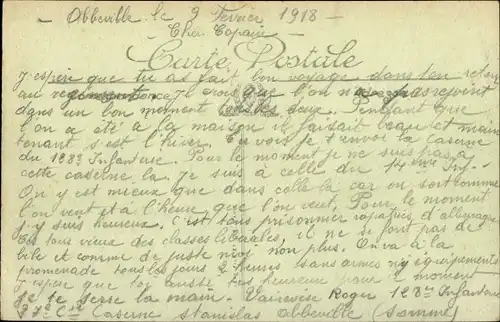 Abbeville le 9 Fevrier 1918
Cher Copain
Carte Postale
J'espère que tu as fait bon voyage dans ton retour
au regiment. Je crois que l'on
dans un bon moment tous les deux. Pendant que
l'on a été a la maison il faisait beau et main
tenant s'est l'hiver. Tu vois je t'envoi la Caserne
du 188e Infanterie. Pour le moment je ne suis pas a
cette caserne la. Je suis a celle du Inf.
On y est mieux que dans celle la car on sort comme
l'on veut et à l'heure que l'on veut. Pour le moment
j'y suis heureux. c'est tous prisonnier d'allemagne
tous vieux des classes il ne se font pas de
bile et comme de juste moi non plus. On va à la
promenade tous les jours 2 heures sans armes ny équipements
J'espère que toi aussi tes heureux pour le moment
je te serre la main. Roger 128e Infanterie
Cie Caserne Stanislas Abbeville (Somme)